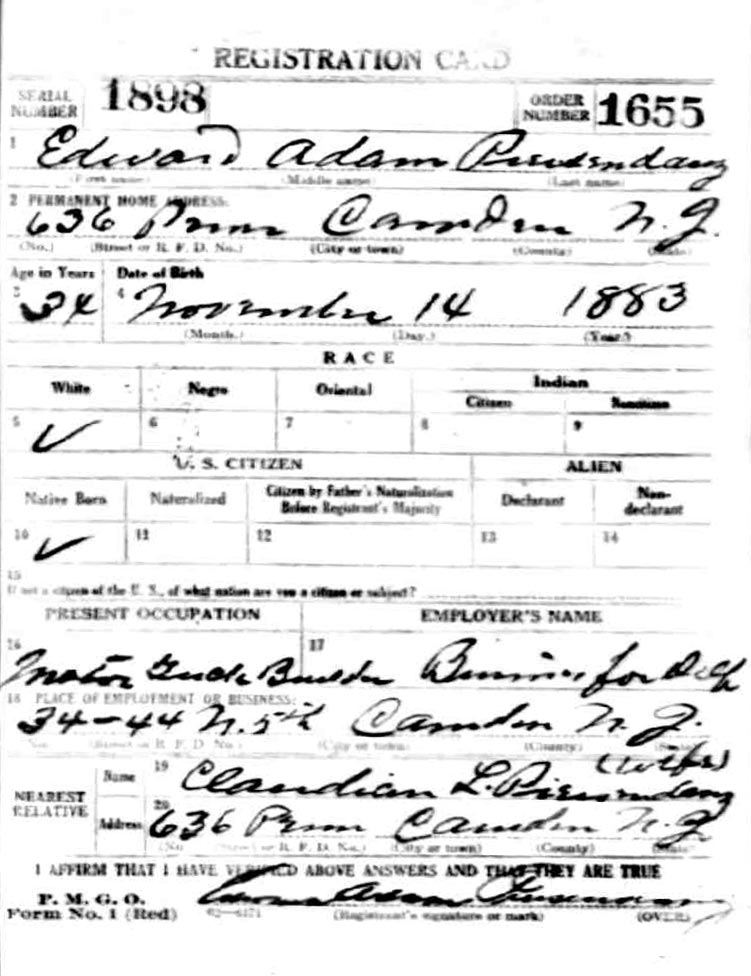 REGISTRATION CARD
SERIAL NUMBER 1898 ORDER NUMBER 1655
1 Edward Adam
(First name) (Middle name) (Last name)
2 PERMANENT HOME ADDRESS:
636 Penn Camden N. J.
(No.) (Street or R. F. D. No.) (City or town) (County) (State)
Age in Years Date of Birth
3 34 4 November 14 1883
(Month.) (Day.) (Year.)
RACE
White Negro Oriental Indian
Citizen
5 ✓ 6 7 8 9
U. S. CITIZEN ALIEN
Native Born Naturalized Citizen by Father's Naturalization Before Registrant's Majority Declarant Non-declarant
10 ✓ 11 12 13 14
15
If not a citizen of the U. S., of what nation are you a citizen or subject?
PRESENT OCCUPATION EMPLOYER'S NAME
16 17
Motor Truck Builder Business for Self
18 PLACE OF EMPLOYMENT OR BUSINESS:
34-44 N. 5th Camden N. J.
(No.) (Street or R. F. D. No.) (City or town) (County) (State)
(wife)
NEAREST RELATIVE Name 19 L.
Address 20 636 Penn Camden N. J.
(No.) (Street or R. F. D. No.) (City or town) (County) (State)
I AFFIRM THAT I HAVE VERIFIED ABOVE ANSWERS AND THAT THEY ARE TRUE
P. M. G. O.
Form No. 1 (Red) Adam
(Registrant's signature or mark) (OVER)